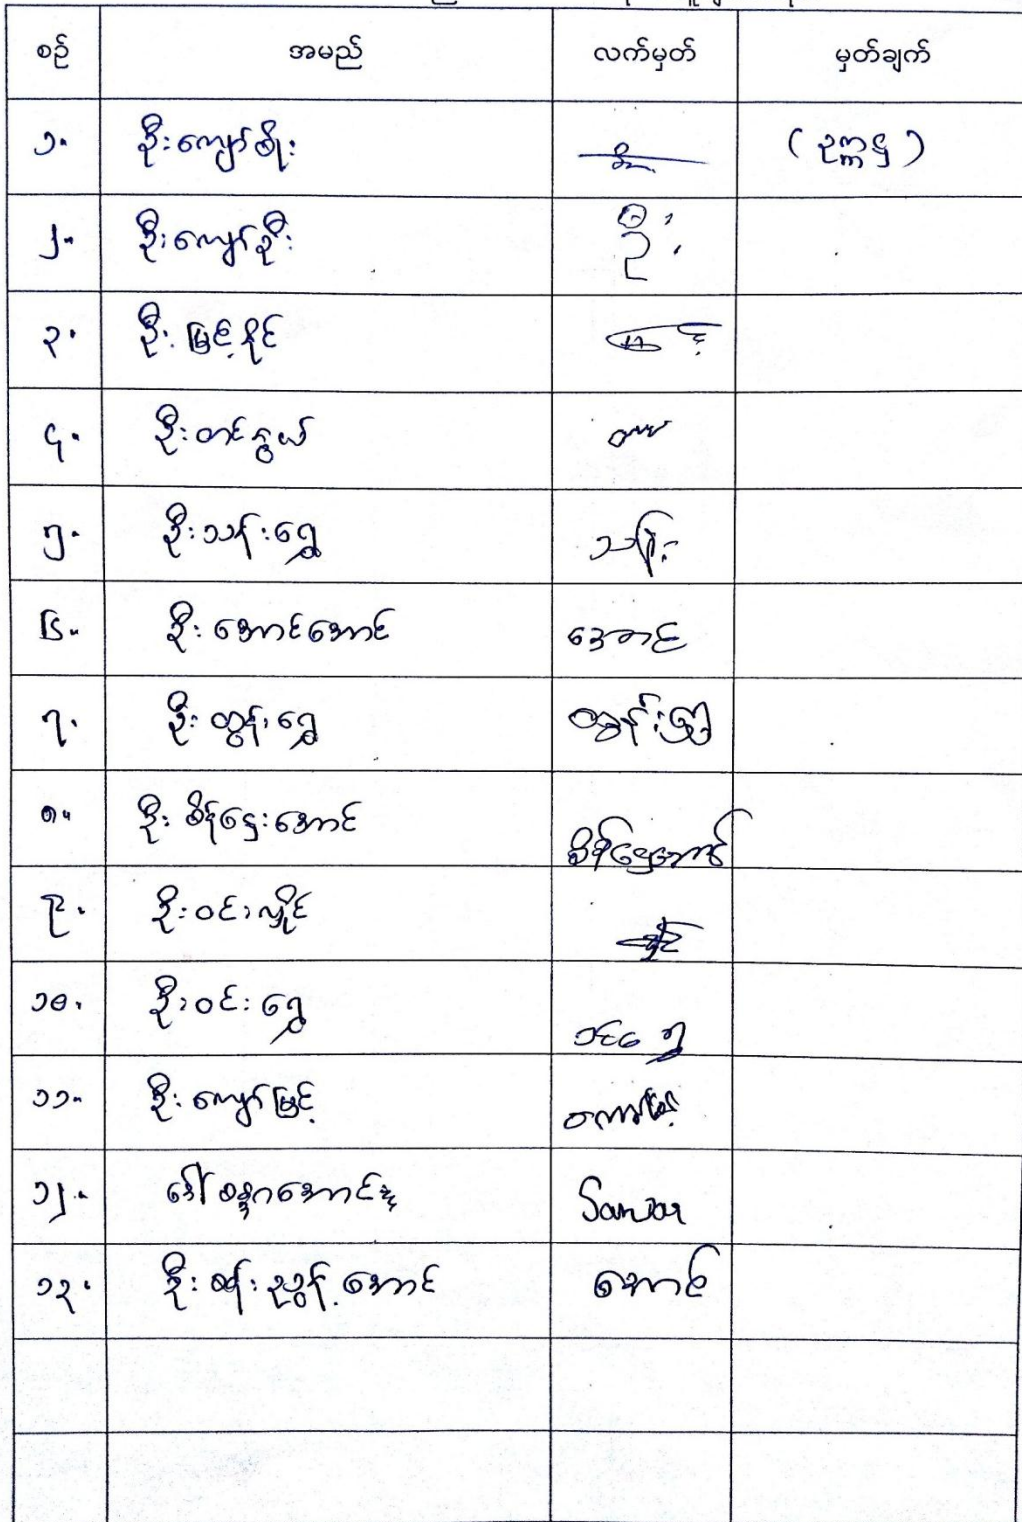 စဉ် အမည် လက်မှတ် မှတ်ချက်
၁။ ဦးကျော်စိုး (ဥက္ကဋ္ဌ)
၂။ ဦးကျော်ဦး ဦး
၃။ ဦးမြင့်စိုင် မြင့်
၄။ ဦးတင်နွယ်
၅။ ဦးသန်းရွှေ သန်း
၆။ ဦးအောင်အောင် အောင်
၇။ ဦးထွန်းရွှေ ထွန်းရွှေ
၈။ ဦးစိန်ဌေးအောင် စိန်ဌေးအောင်
၉။ ဦးဝင်းလှိုင်
၁၀။ ဦးဝင်းရွှေ ဝင်းရွှေ
၁၁။ ဦးကျော်မြင့် ကျော်မြင့်
၁၂။ ဒေါ်စန္ဒာအောင် Sandar
၁၃။ ဦးစန်းညွန့်အောင် အောင်